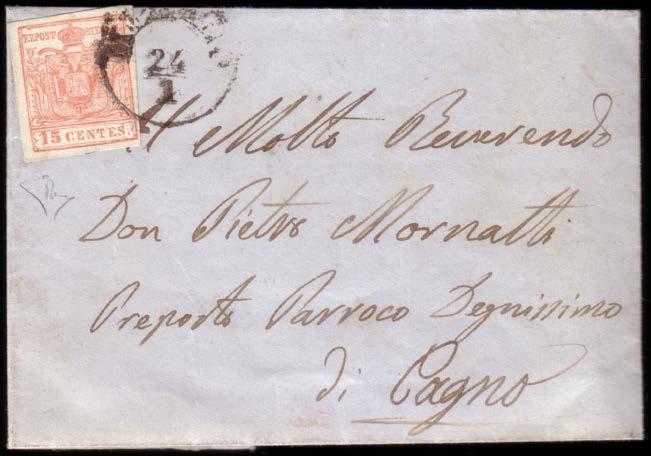 KKPOST-STEMPEL
15 CENTES.
24
1
Al Molto Reverendo
Don Pietro Mornatti
Preposto Parroco Degnissimo
di Cagno